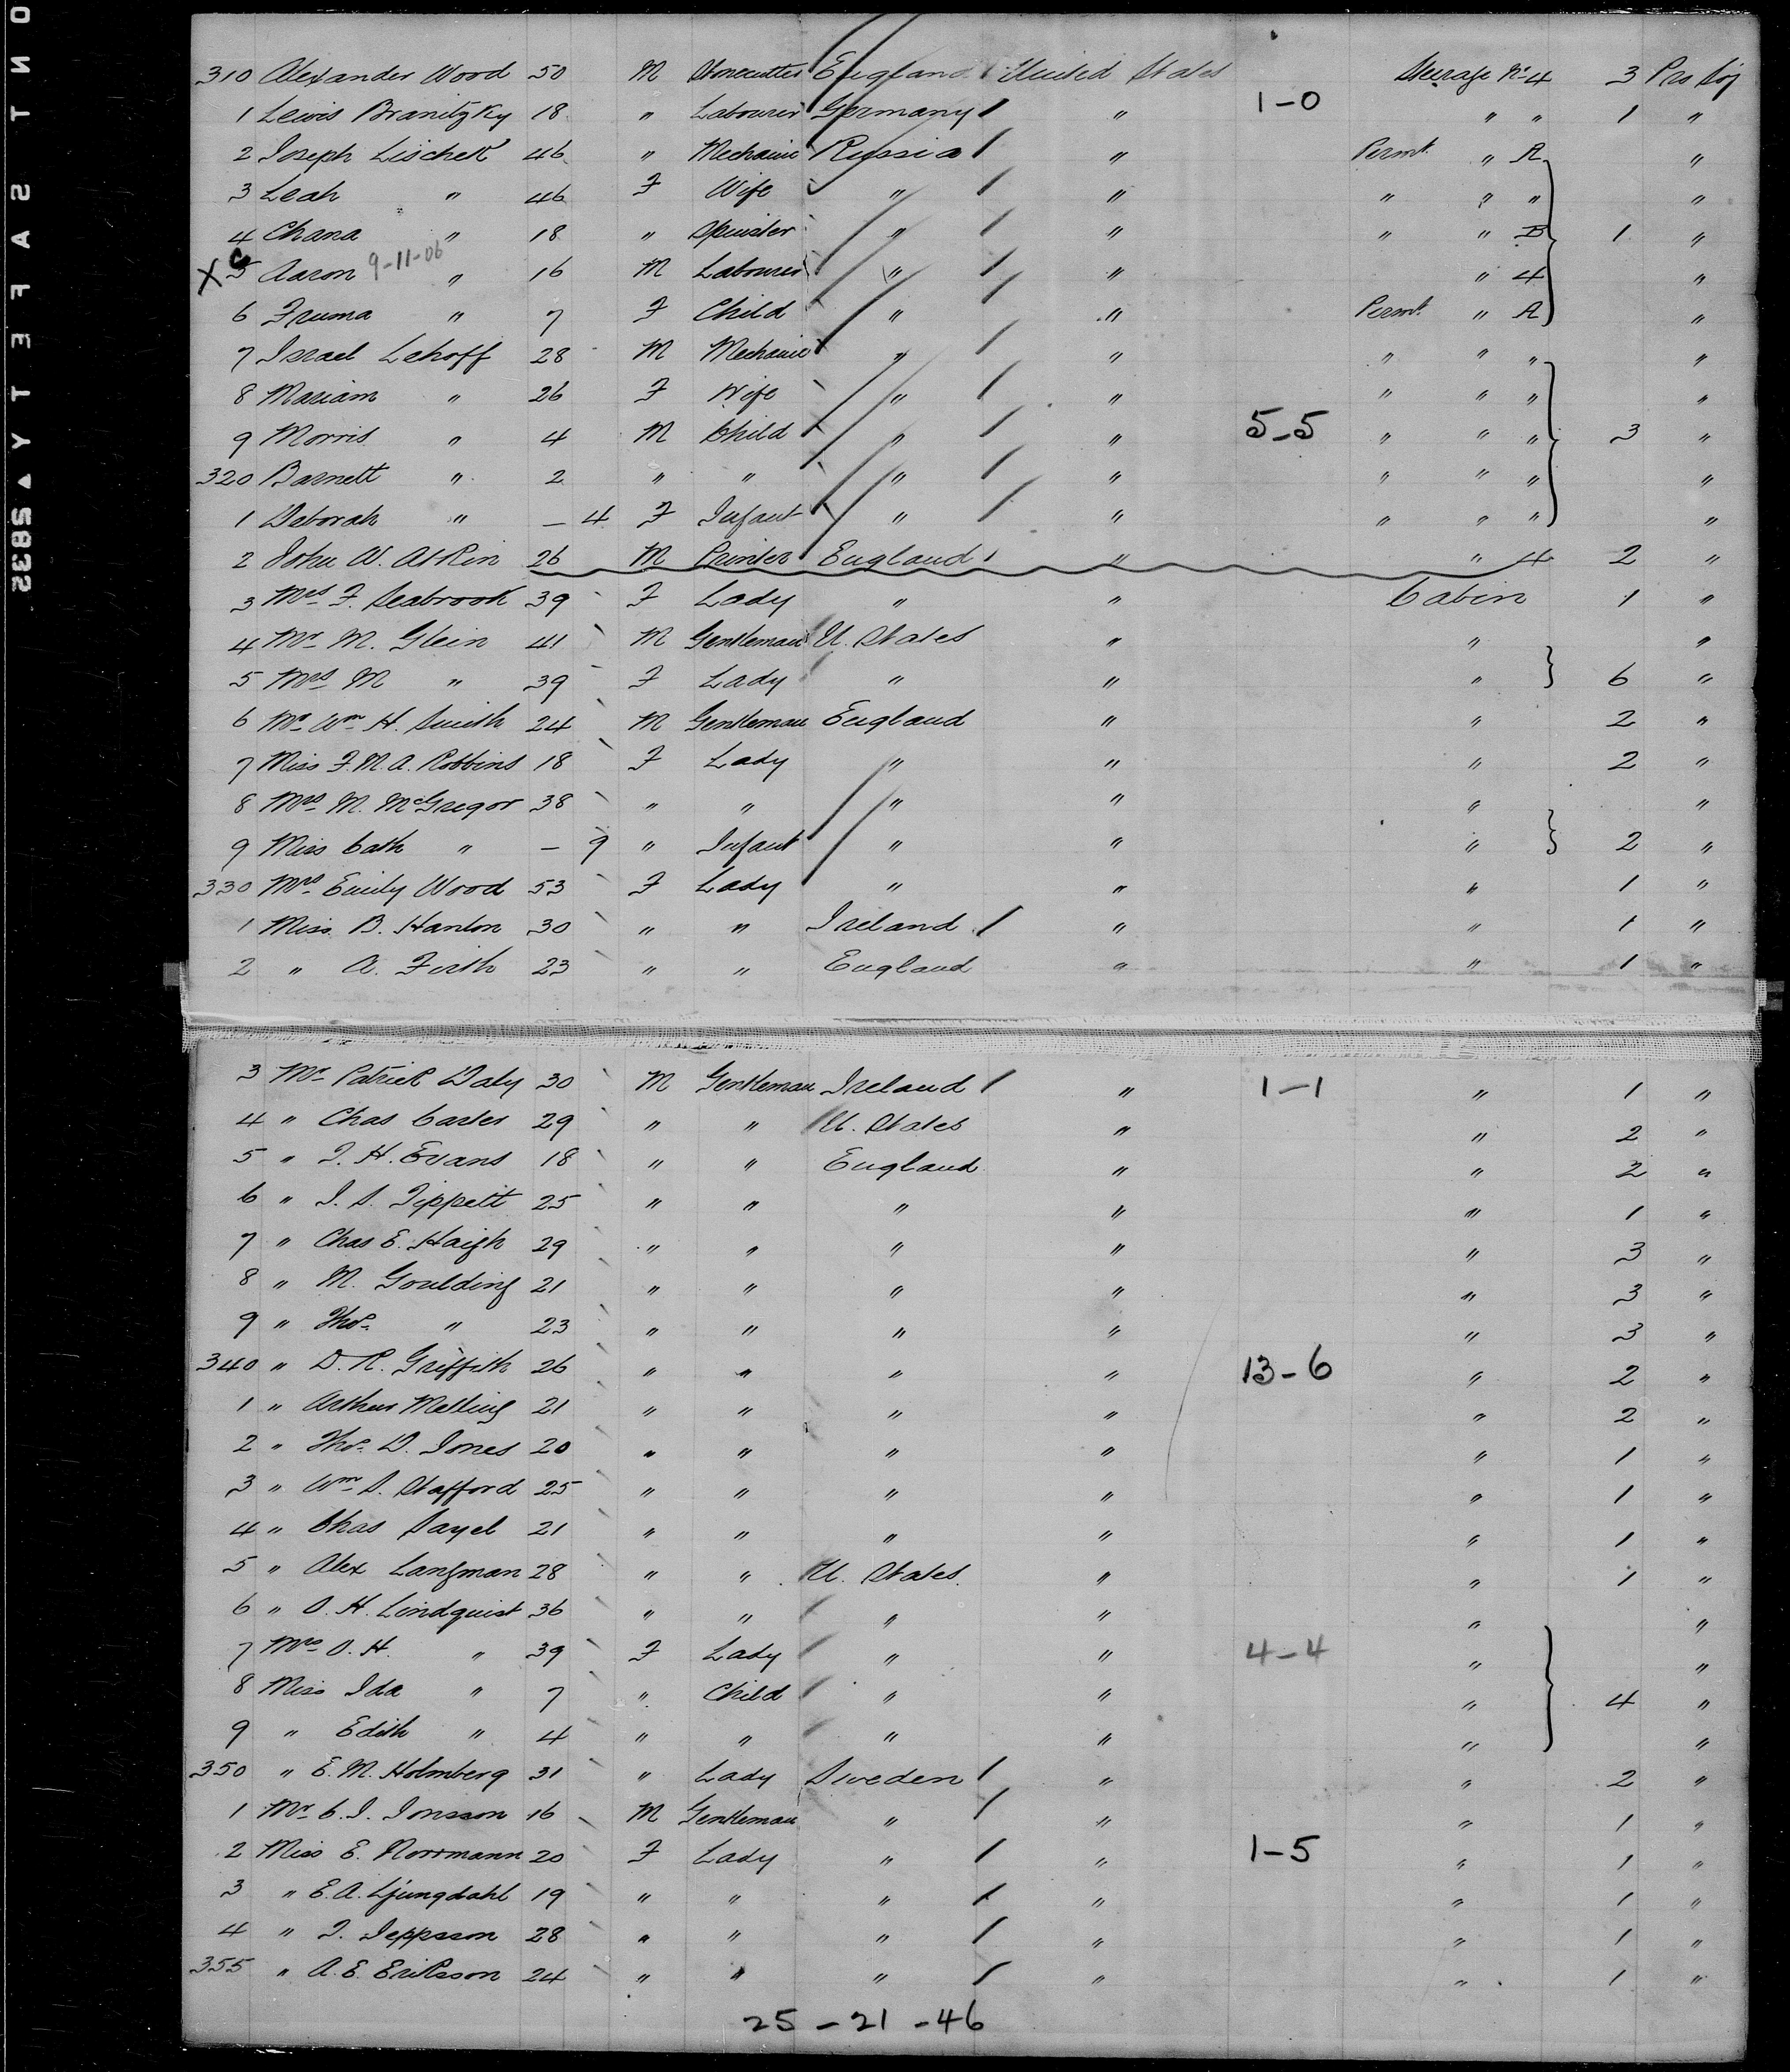 310 Alexander Wood 50 M Stonecutter England United States Steerage No 4 3 Pro Soj
1 Lewis Branitzky 18 " Labourer Germany " 1-0 " " 1 "
2 Joseph Lischek 46 " Mechanic Russia " Permt. " A "
3 Leah " 46 F Wife " " " " " "
4 Chana " 18 " Spinster " " " " B 1 "
X C 5 Aaron 9-11-06 " 16 M Labourer " " " 4 "
6 Fruma " 7 F Child " " Permt. " A "
7 Israel Lehoff 28 M Mechanic " " " " " "
8 Mariam " 26 F Wife " " " " " "
9 Morris " 4 M Child " " 5-5 " " " 3 "
320 Barnett " 2 " " " " " " " "
1 Deborah " - 4 F Infant " " " " " "
2 John W. Atkin 26 M Printer England " " 4 2 "
3 Mrs F. Seabrook 39 F Lady " " Cabin 1 "
4 Mr M. Glein 41 M Gentleman U. States " " "
5 Mrs M " 39 F Lady " " " 6 "
6 Mr Wm H. Smith 24 M Gentleman England " " 2 "
7 Miss F. M. A. Robbins 18 F Lady " " " 2 "
8 Mrs M. McGregor 38 " " " " " "
9 Miss Cath " - 9 " Infant " " " 2 "
330 Mrs Emily Wood 53 F Lady " " " 1 "
1 Miss B. Hanlon 30 " " Ireland " " 1 "
2 " A. Firth 23 " " England " " 1 "
3 Mr Patrick Daly 30 M Gentleman Ireland " 1-1 " 1 "
4 " Chas Carter 29 " " U. States " " 2 "
5 " T. H. Evans 18 " " England " " 2 "
6 " J. S. Tippett 25 " " " " " 1 "
7 " Chas E. Haigh 29 " " " " " 3 "
8 " M. Goulding 21 " " " " " 3 "
9 " Thos " 23 " " " " " 3 "
340 " D. R. Griffith 26 " " " " 13-6 " 2 "
1 " Arthur Melling 21 " " " " " 2 "
2 " Thos D. Jones 20 " " " " " 1 "
3 " Wm S. Stafford 25 " " " " " 1 "
4 " Chas Sayel 21 " " " " " 1 "
5 " Alex Langman 28 " " U. States " " 1 "
6 " O. H. Lindquist 36 " " " " " "
7 Mrs O. H. " 39 F Lady " " 4-4 " "
8 Miss Ida " 7 " Child " " " 4 "
9 " Edith " 4 " " " " " "
350 " E. M. Holmberg 31 " Lady Sweden " " 2 "
1 Mr C. J. Jonsson 16 M Gentleman " " " 1 "
2 Miss E. Norrmann 20 F Lady " " 1-5 " 1 "
3 " E. A. Ljungdahl 19 " " " " " 1 "
4 " T. Jeppsson 28 " " " " " 1 "
355 " A. E. Eriksson 24 " " " " " 1 "
25 - 21 - 46